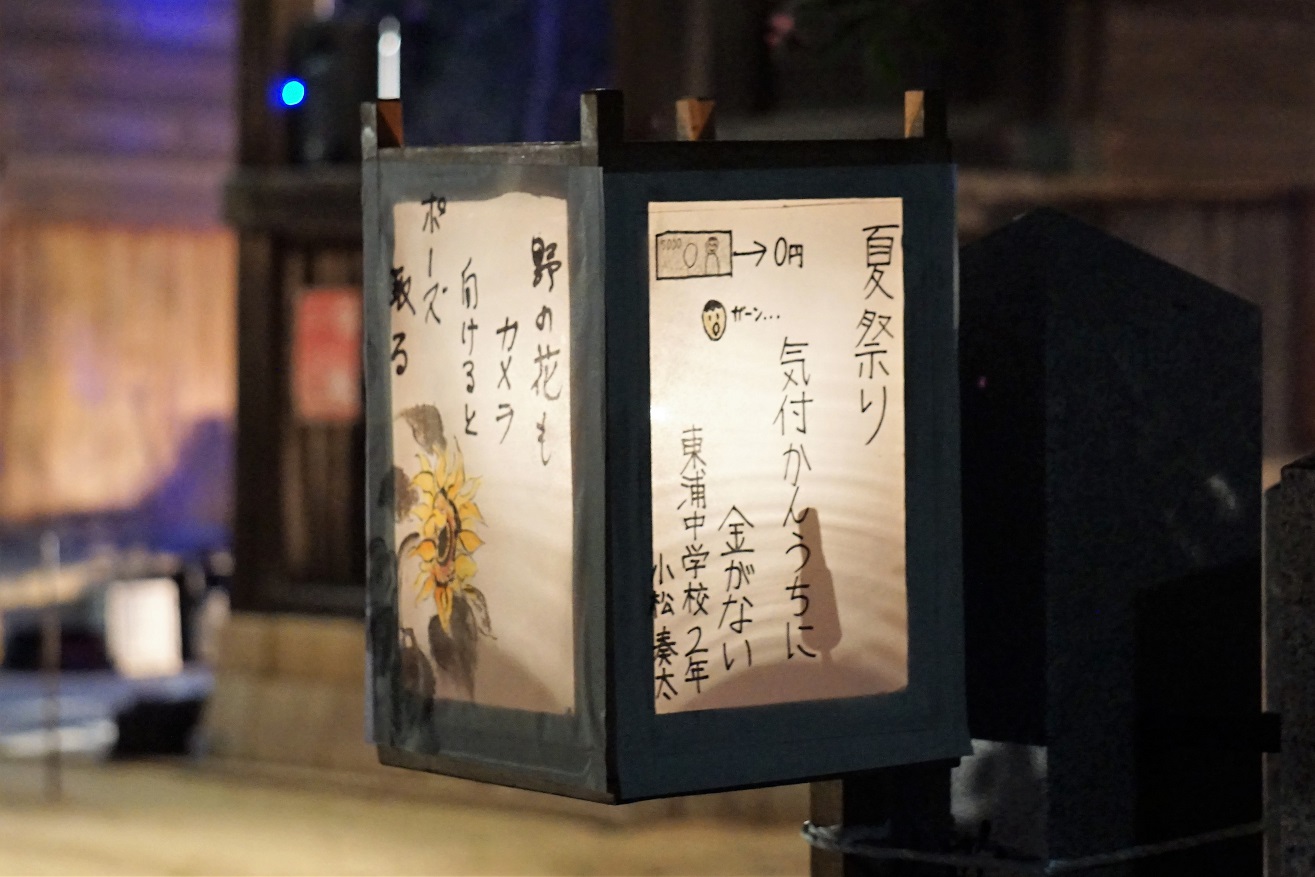 野の花も
カメラ
向けると
ポーズ
取る
夏祭り
気付かんうちに
金がない
東浦中学校2年
小松奏太
5000
→0円
ガーン...